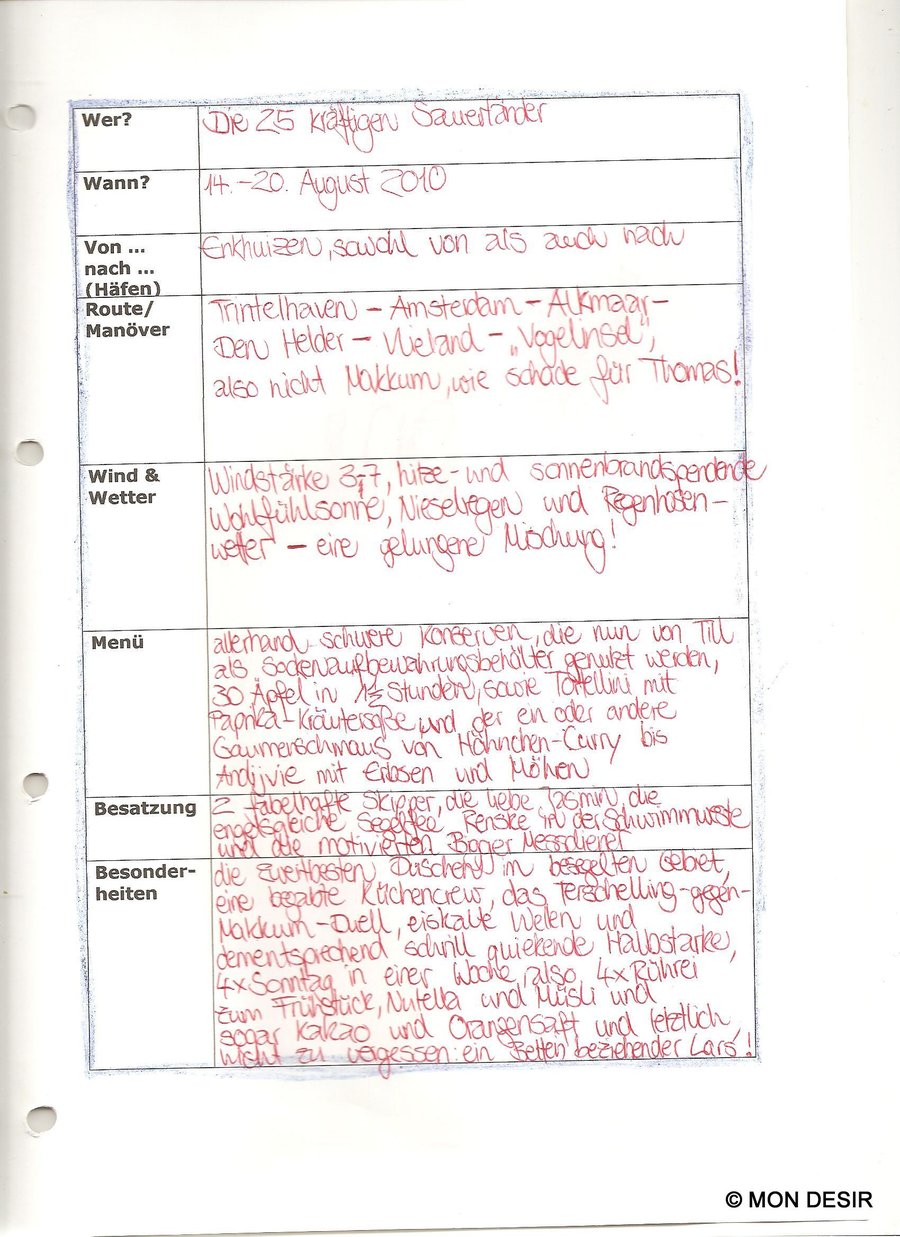 Wer?
Die 25 kräftigen Sauerländer
Wann?
14.-20. August 2010
Von ...
nach ...
(Häfen)
Enkhuizen, sowohl von als auch nach
Route/
Manöver
Trintelhaven - Amsterdam - Alkmaar -
Den Helder - Vlieland - „Vogelinsel",
also nicht Makkum, wie schade für Thomas!
Wind &
Wetter
Windstärke 3-7, hitze- und sonnenbrandspendende
Wohlfühlsonne, Nieselregen und Regenhosen-
wetter - eine gelungene Mischung!
Menü
allerhand schwere Konserven, die nun von Till
als Sockenaufbewahrungsbehälter genutzt werden,
30 Äpfel in 1½ Stunden, sowie Tortellini mit
Paprika-Kräutersoße und der ein oder andere
Gaumenschmaus von Hähnchen-Curry bis
Andijvie mit Erbsen und Möhren
Besatzung
2 fabelhafte Skipper, die liebe Jasmin, die
engelsgleiche Segelfee Renske in der Schwimmweste
und die motivierten Bigger Messdiener
Besonder-
heiten
die zweitbesten Duschen in besegelten Gebiet,
eine begabte Küchencrew, das Terschelling-gegen-
Makkum-Duell, eiskalte Wellen und
dementsprechend schrill quiekende Halbstarke,
4x Sonntag in einer Woche, also 4x Rührei
zum Frühstück, Nutella und Müsli und
sogar Kakao und Orangensaft und letztlich
nicht zu vergessen: ein Betten beziehender Lars!
© MON DESIR